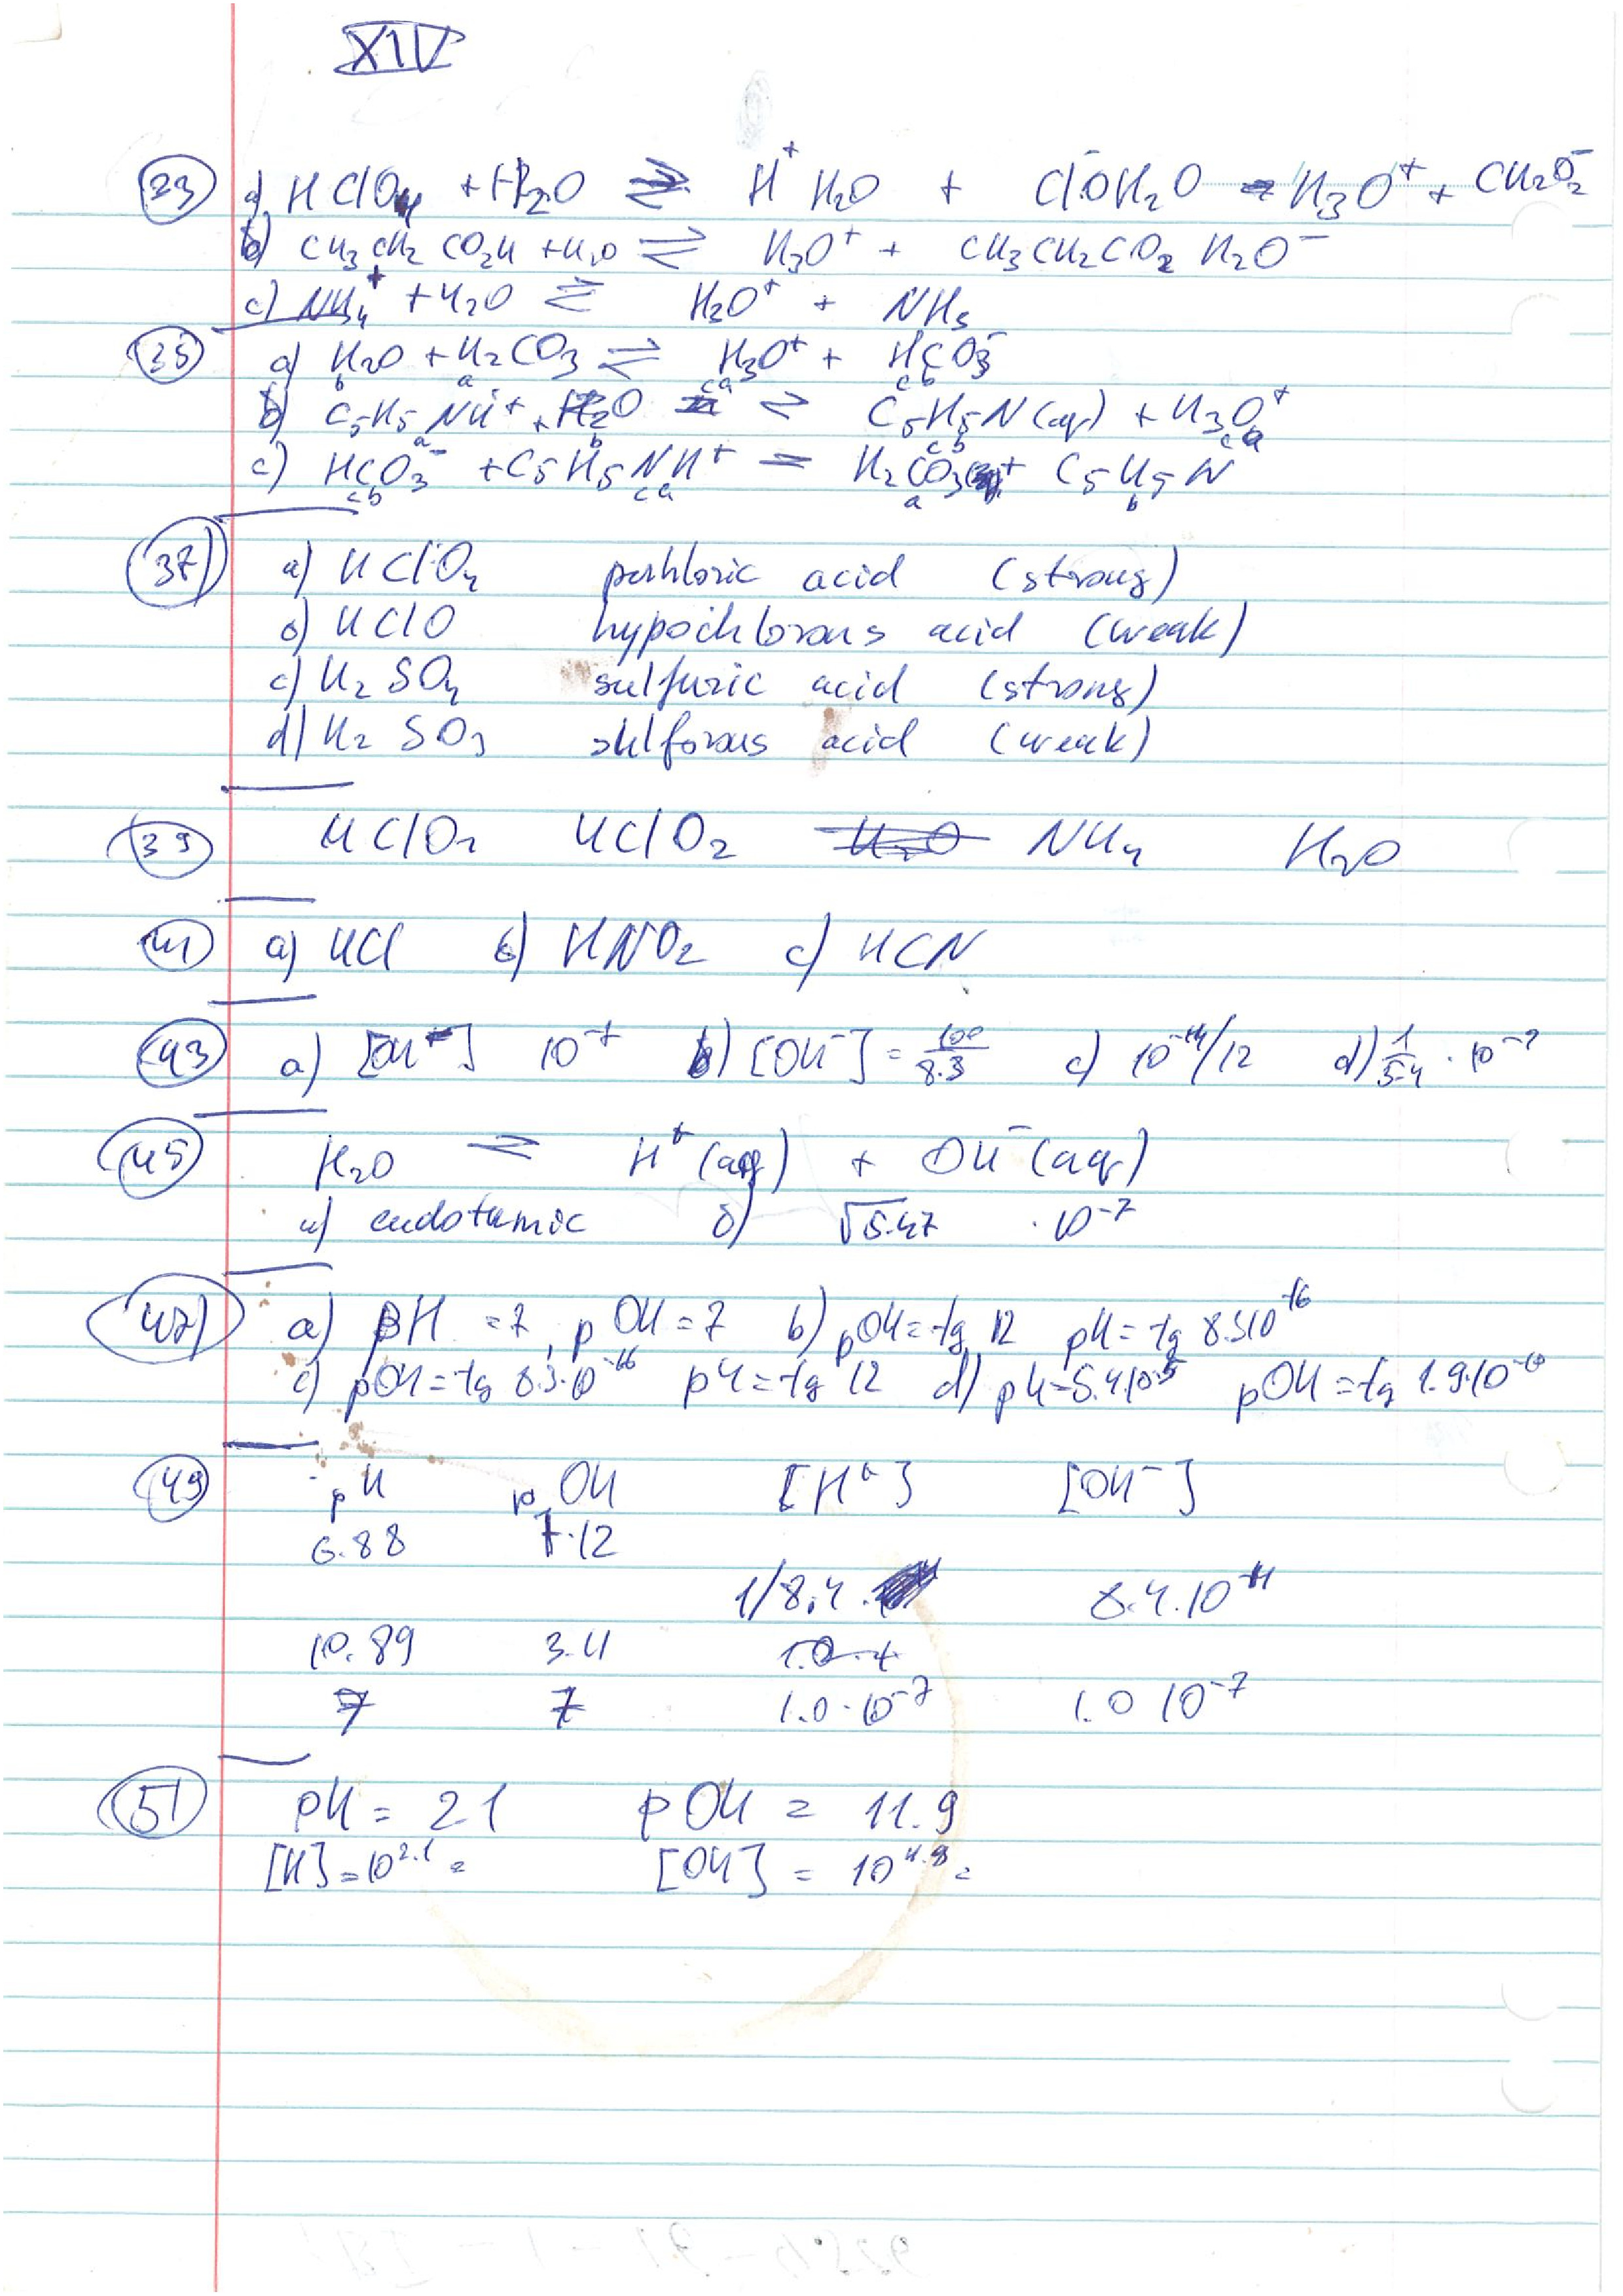 XIV
23 a) HClO4 + H2O ⇌ H+ H2O + ClO H2O = H3O+ +
b) CH3CH2CO2H + H2O ⇌ H3O+ + CH3CH2CO2 H2O−
c) NH4+ + H2O ⇌ H3O+ + NH3
35 a) H2O + H2CO3 ⇌ H3O+ + HCO3−
b a ca cb
b) C5H5NH+ + H2O ⇌ C5H5N(aq) + H3O+
a b cb ca
c) HCO3− + C5H5NH+ = H2CO3 + C5H5N
cb ca a b
37 a) HClO4 perhloric acid (strong)
b) HClO hypochlorous acid (weak)
c) H2SO4 sulfuric acid (strong)
d) H2SO3 sulforous acid (weak)
39 HClO2 NH4 H2O
41 a) HCl b) HNO2 c) HCN
43 a) [OH−] 10−7 b) [OH−] = 100/8.3 c) 10−14/12 d) 1/5.4 · 10−9
45 H2O ⇌ H+(aq) + OH−(aq)
a) endotermic b) √5.47 · 10−7
47 a) pH = 7, pOH = 7 b) pOH = -lg 12 pH = -lg 8.3 10−16
c) pOH = -lg 8.3·10−16 pH = -lg 12 d) pH = 5.4·10−5 pOH = -lg 1.9·10−10
49 pH pOH [H+] [OH−]
6.88 7.12
1/8.4 8.4·10
10.89 3.11
7 7 1.0·10−7 1.0 10−7
51 pH = 2.1 pOH = 11.9
[H] = 10^2.1 = [OH] = 10^11.9 =